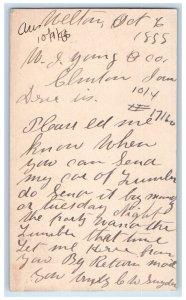 Ans Welton, Oct 6
10/9/88 1888
W. J. Young & Co.
Clinton Iowa
Dear sir. 10/4
17160
Please led me
know When
you can Send
my car of Lumber
do Send it by monday
or tuesday night
the party wants the
Lumber that time
Let me Here from
you By Return mail
you truly C W Snyder